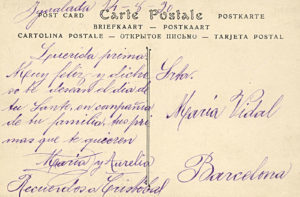 Igualada 15-5-20
POST CARD Carte Postale POSTKARTE
BRIEFKAART — POSTKARTE
CARTOLINA POSTALE — ОТКРЫТОЕ ПИСЬМО — TARJETA POSTAL
Querida prima.
Muy feliz y dicho
so te desean el dia de
tu Santo, en compañia
de tu familia, tus pri
mas que te quieren
Maria y Aurelia
Recuerdos a Cristobal
Srta.
Maria Vidal
Barcelona